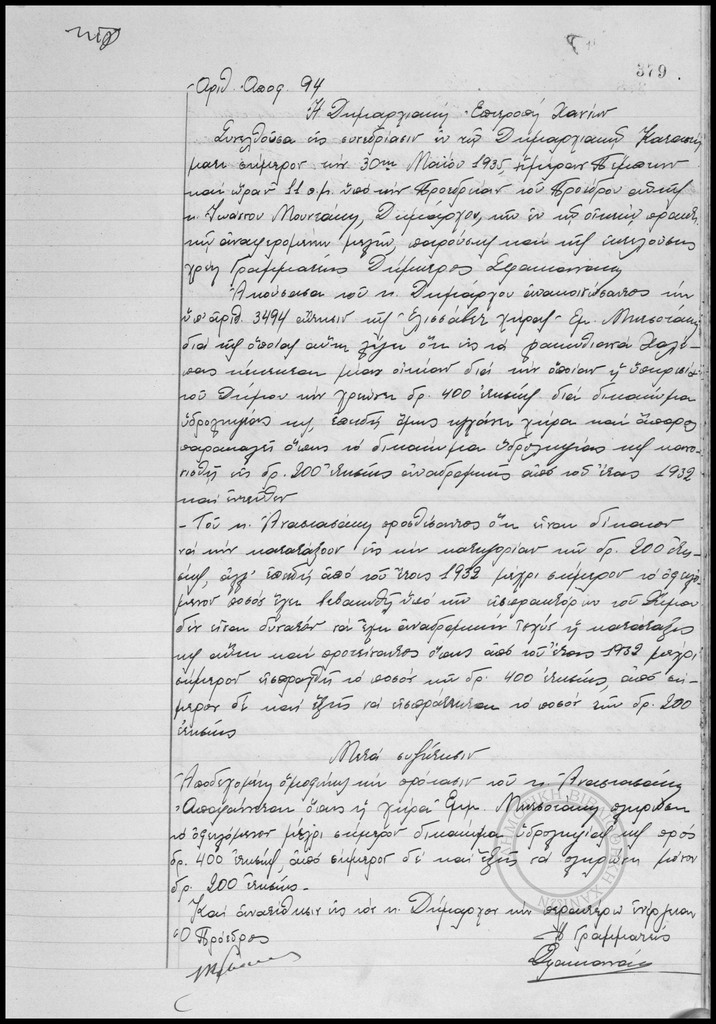 379
Αριθ. Αποφ. 94
Η Δημαρχιακή Επιτροπή Χανίων
Συνελθούσα εις συνεδρίασιν εν τω Δημαρχιακώ Καταστή
ματι σήμερον την 30ην Μαΐου 1935, ημέραν Πέμπτην
και ώραν 11 π.μ. υπό την Προεδρείαν του Προέδρου αυτής
κ. Μουντάκη, Δημάρχου, των εν τη οικεία πρακτι
κή αναφερομένων μελών, παρούσης και της εκτελούσης
χρέη Γραμματέως Δημητρας Σφακιανάκη
Ακούσασα του κ. Δημάρχου ανακοινώσαντος την
υπ' αριθ. 3494 αίτησιν της Ελισσάβετ χήρας Εμ. Μητσοτάκη
διά της οποίας αύτη λέγει ότι εις τα Χαλέ-
πας κέκτηται μίαν οικίαν διά την οποίαν η υπηρεσία
του Δήμου την χρεώνει δρ. 400 ετησίως διά δικαίωμα
υδροληψίας της, επειδή όμως τυγχάνει χήρα και άπορος
παρακαλεί όπως το δικαίωμα υδροληψίας της κανο-
νισθή εις δρ. 200 ετησίως αναδρομικώς από του έτους 1932
και εντεύθεν
- Του κ. Αναστασάκη προσθέσαντος ότι είναι δίκαιον
να την κατατάξουν εις την κατηγορίαν των δρ. 200 ετη-
σίως, αλλ' επειδή από του έτους 1932 μέχρι σήμερον το οφειλό
μενον ποσόν έχει βεβαιωθή υπό των εισπρακτόρων του Δήμου
δεν είναι δυνατόν να έχη αναδρομικήν ισχύν η κατάταξις
της αύτη και προτείναντος όπως από του έτους 1932 μέχρι
σήμερον εισπραχθή το ποσόν των δρ. 400 ετησίως, από σή-
μερον δε και εξής να εισπράττεται το ποσόν των δρ. 200
ετησίως
Μετά συζήτησιν
Αποδεχομένη ομοφώνως την πρότασιν του κ. Αναστασάκη
Αποφαίνεται όπως η χήρα Εμμ. Μητσοτάκη πληρώση
το οφειλόμενον μέχρι σήμερον δικαίωμα υδροληψίας της προς
δρ. 400 ετησίως, από σήμερον δε και εξής να πληρώνη μόνον
δρ. 200 ετησίως.-
Και αναθέτει εις τον κ. Δήμαρχον την περαιτέρω ενέργειαν
Ο Πρόεδρος
Η Γραμματεύς
Σφακιανάκη
ΔΗΜΟΤΙΚΗ ΒΙΒΛΙΟΘΗΚΗ ΧΑΝΙΩΝ